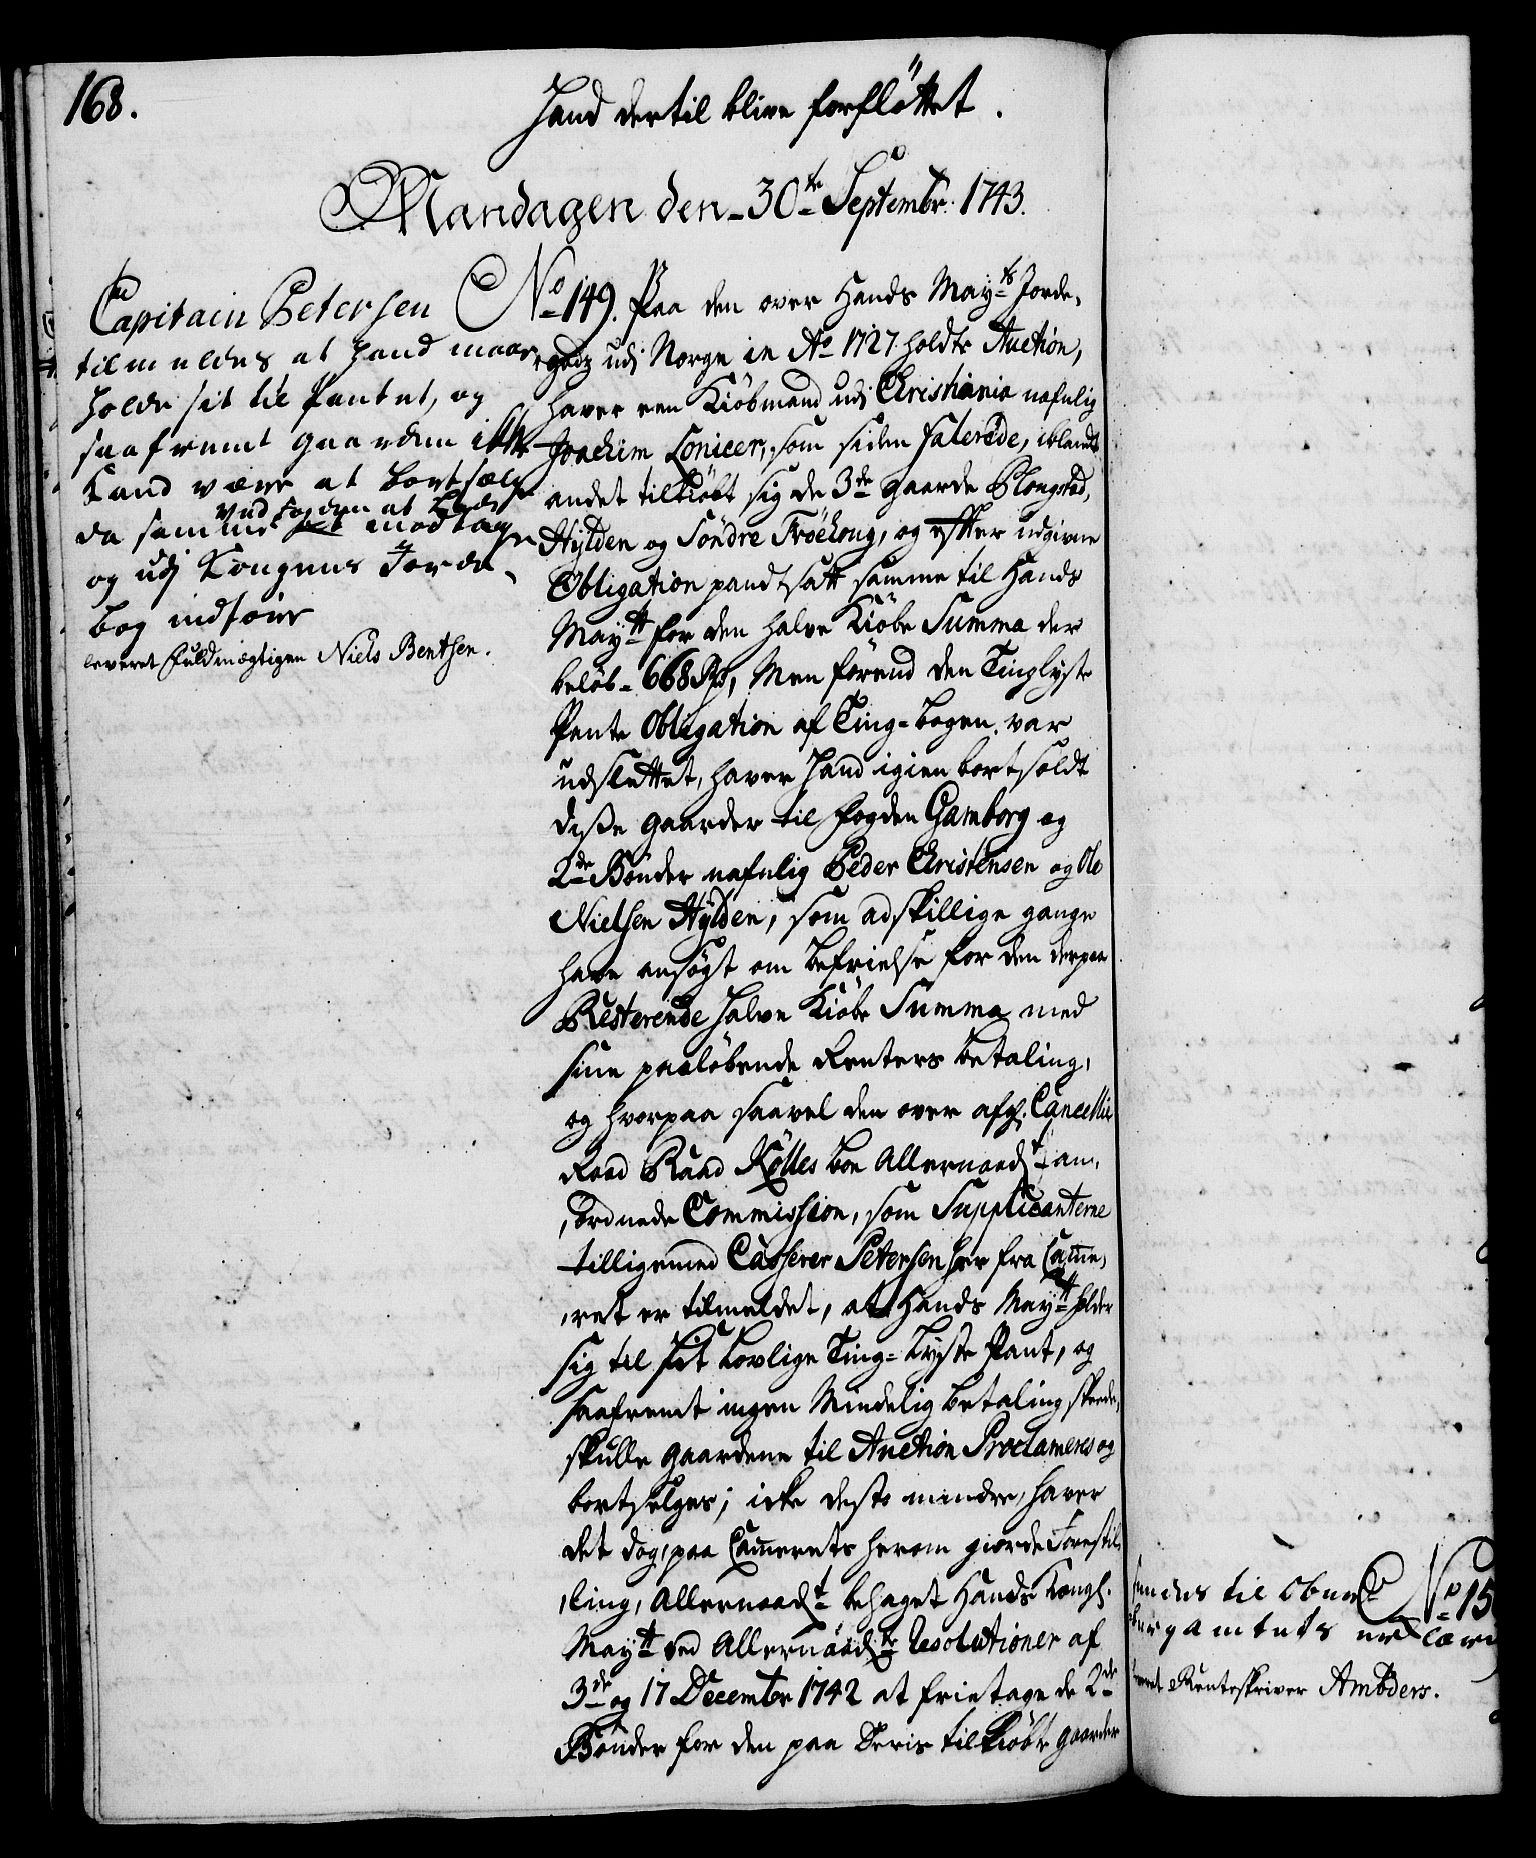 168.
Hand dertil blive forfløttet.
Mandagen den 30te Septembr. 1743.
Capitain Petersen
tilmeldes at hand maae
holde sit til Pantet, og
saafremt gaardene ikke
kand være at bortsælge
da samme ved Fogden at lade modtage
og udj Kongens Jorde-
bog indføre
leveret Fuldmægtigen Niels Bentsen.
No 149. Paa den over Hands Mayts Jorde-
godz udj Norge in Ao 1727 holdte Auction,
haver een Kiöbmand udj Christiania nafnlig
Joachim Lonicer, som siden falerede, iblandt
andet tilkiöbt sig de 3de gaarde Plongstad,
Hylden og Söndre Fröihoug, og efter udgivne
Obligation pandtsatt samme til Hands
Maytt for den halve Kiöbe Summa der
belöb 668 Rd, Men förend den Tinglyste
Pante Obligation af Ting-bogen var
udslettet, haver hand igien bortsoldt
disse gaarder til Fogden Gamborg og
2de Bönder nafnlig Peder Christensen og Ole
Nielsen Hylden, som adskillige gange
have ansögt om befrielse for den derpaa
Resterende halve Kiöbe Summa med
sine paalöbende Renters betaling,
og hvorpaa saavel den over afg. Cancellie
Raad Raad Kölles boe Allernaadt an-
ordnede Commission, som Supplicanterne
tilligemed Casserer Petersen her fra Came-
ret er tilmeldet, at Hands Maytt holder
sig til sit lovlige Ting-lyste Pant, og
saafremt ingen Mindelig betaling skeede,
skulle gaardene til Auction Proclameres og
bortselges; icke desto mindre, haver
det dog, paa Camerets herom giorde Forestil-
ling, Allernaadt behaget Hands Kongl.
Maytt ved Allernaadte Resolutioner af
3de og 17 Decembr 1742 at fritage de 2de
Bönder for den paa Deris tilkiöbte gaarder
sendes til Ober
No 15
gamtets
Renteskriver Ambders.